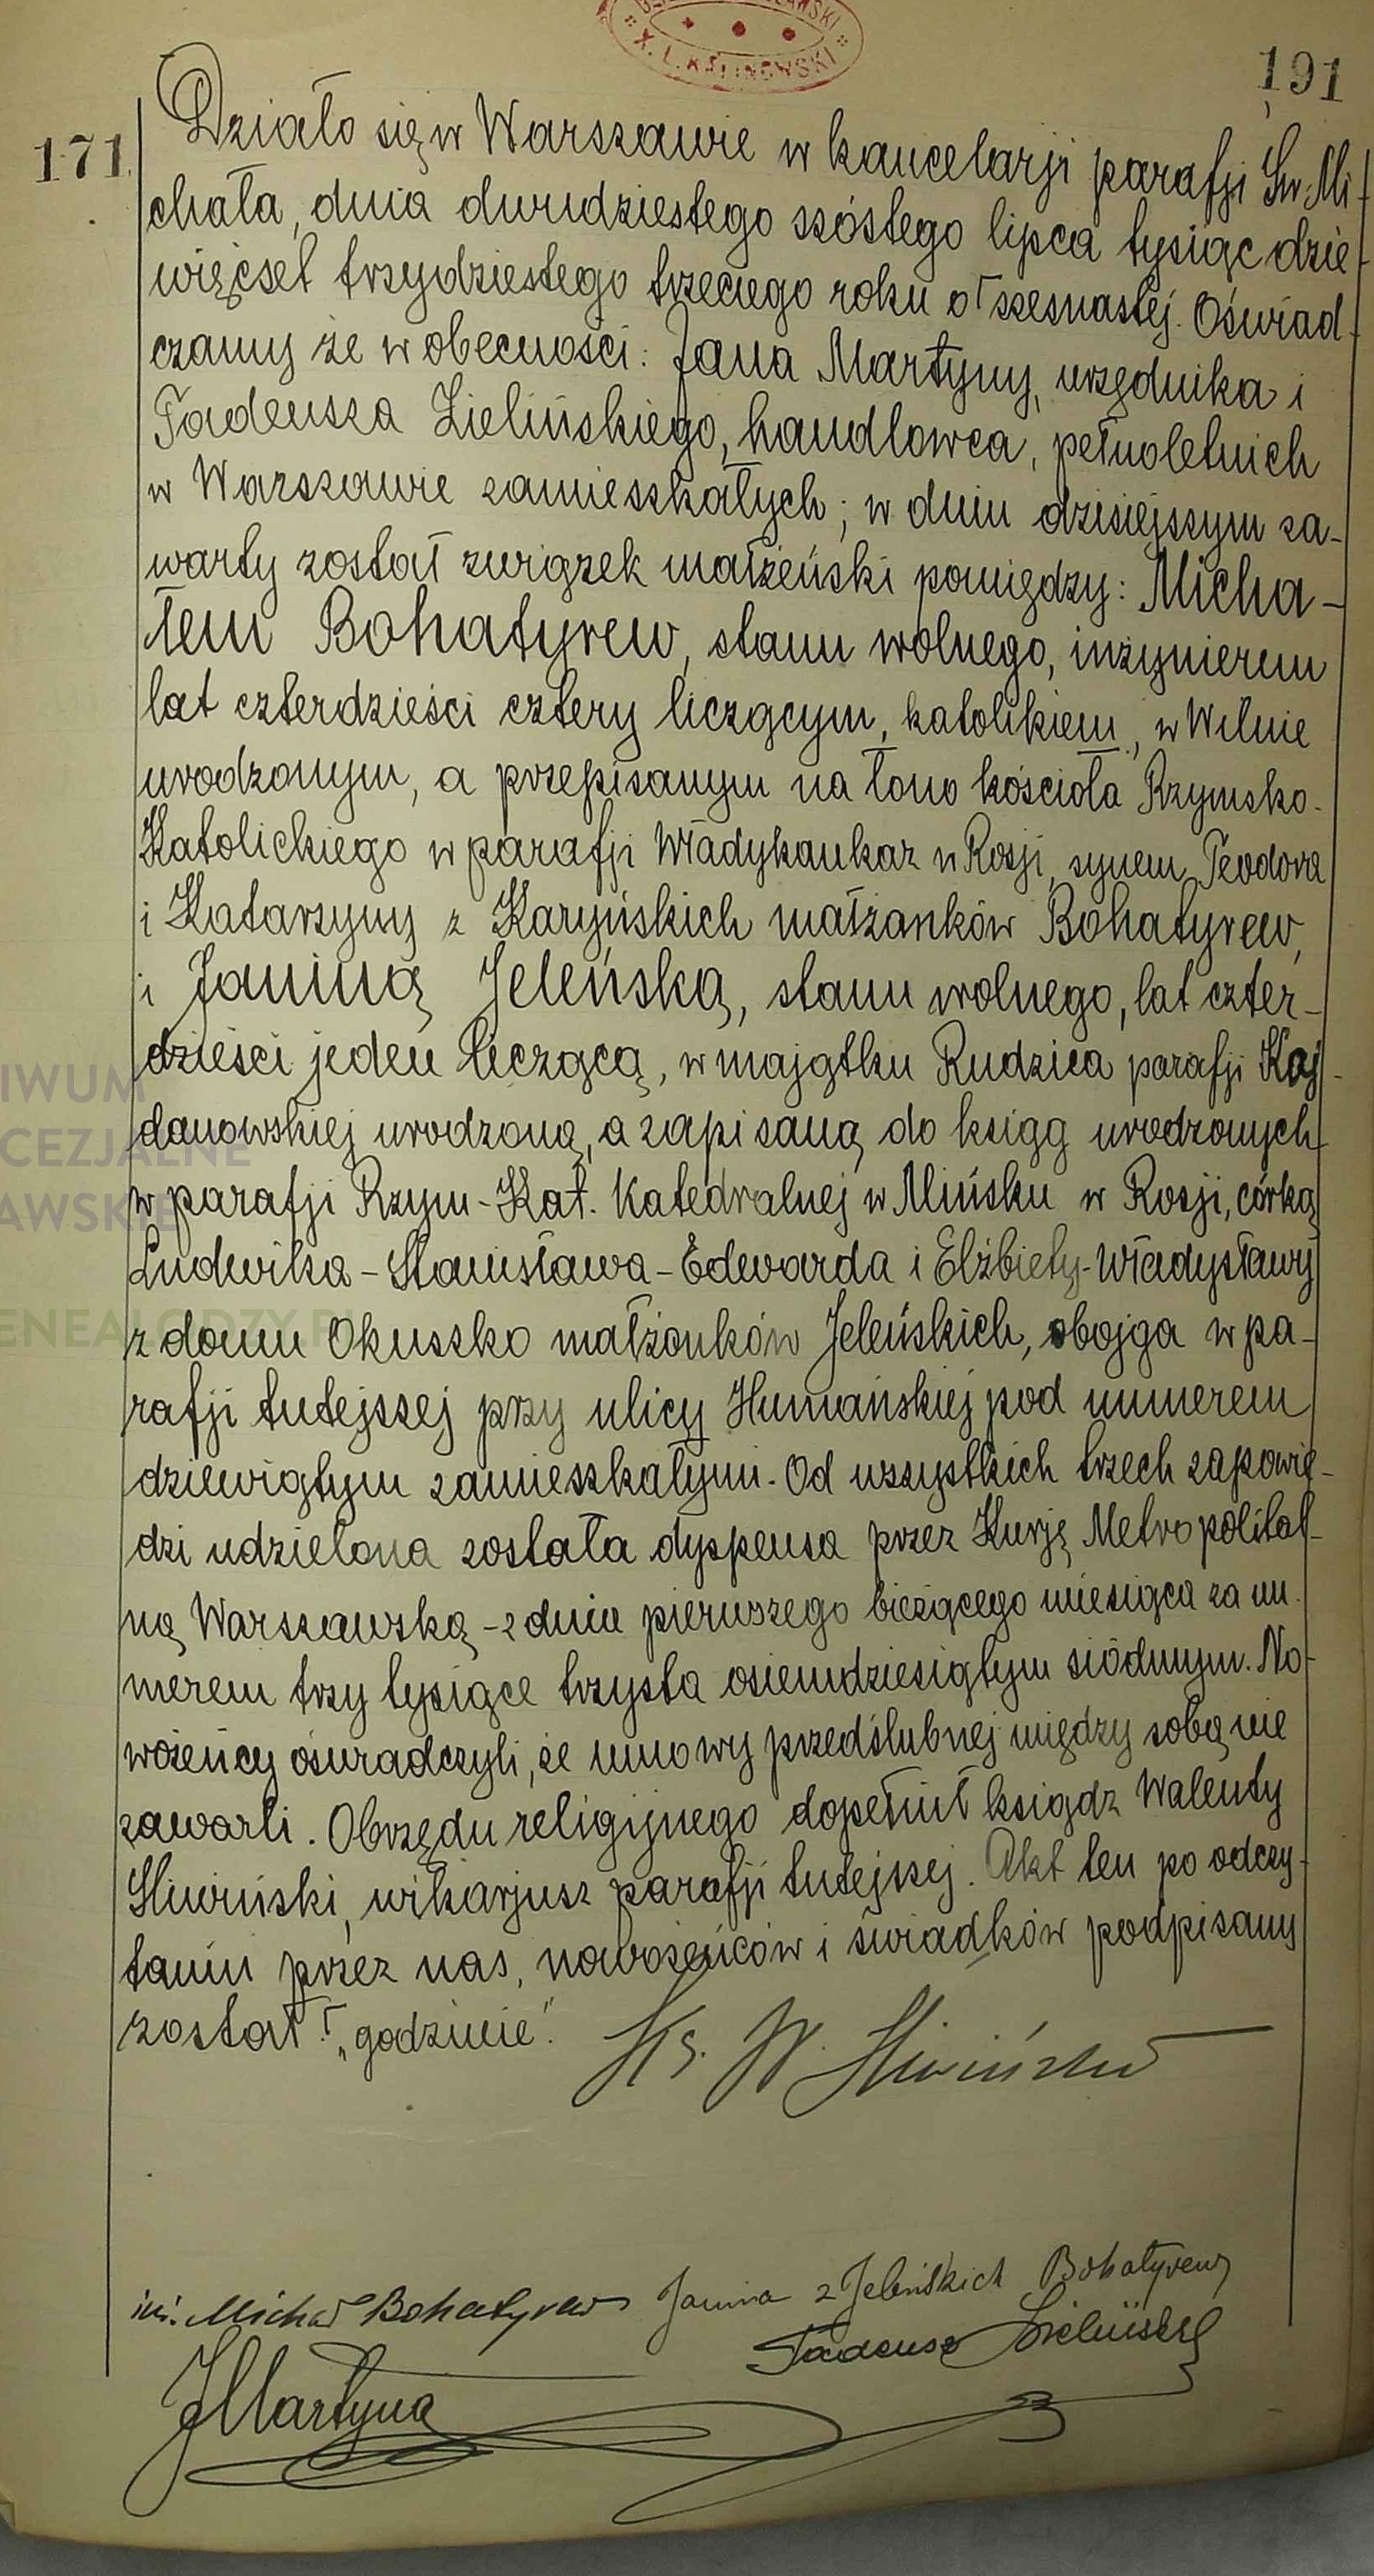 X. L. KALINOWSKI
191
171.
Działo się w Warszawie w kancelarji parafji Św. Mi-
chała, dnia dwudziestego szóstego lipca tysiąc dzie-
więćset trzydziestego trzeciego roku o ⌈ szesnastej. Oświad-
czamy że w obecności: Jana Martyny, urzędnika i
Tadeusza Zielińskiego, handlowca, pełnoletnich
w Warszawie zamieszkałych; w dniu dzisiejszym za-
warty został związek małżeński pomiędzy: Micha-
łem Bohatyrew, stanu wolnego, inżynierem
lat czterdzieści cztery liczącym, katolikiem, w Wilnie
urodzonym, a przepisanym na łono kościoła Rzymsko-
Katolickiego w parafji Władykaukaz w Rosji, synem Teodora
i Katarzyny z Karyńskich małżanków Bohatyrew,
i Janiną Jeleńską, stanu wolnego, lat czter-
dzieści jeden liczącą, w majątku Rudzica parafji Kaj-
danowskiej urodzoną, a zapisaną do ksiąg urodzonych
w parafji Rzym-Kat. Katedralnej w Mińsku w Rosji, córką
Ludwika-Stanisława-Edwarda i Elżbiety-Władysławy
z domu Okuszko małżonków Jeleńskich, obojga w pa-
rafji tutejszej przy ulicy Humańskiej pod numerem
dziewiątym zamieszkałymi. Od wszystkich trzech zapowie-
dzi udzielona została dyspensa przez Kurję Metropolital-
ną Warszawską - z dnia pierwszego bieżącego miesiąca za nu-
merem trzy tysiące trzysta osiemdziesiątym siódmym. No-
wożeńcy oświadczyli, że umowy przedślubnej między sobą nie
zawarli. Obrzędu religijnego dopełnił ksiądz Walenty
Śliwiński, wikarjusz parafji tutejszej. Akt ten po odczy-
taniu przez nas, nowożeńców i świadków podpisany
został. ⌈ „godzinie".
Ks. W. Śliwiński
inż. Michał Bohatyrew Janina z Jeleńskich Bohatyrew
Tadeusz Zieliński
JMartyna